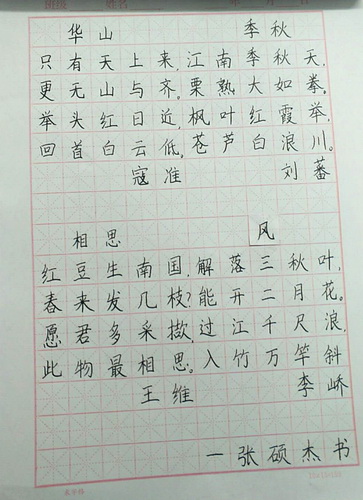 华山 季秋
只有天上来,江南季秋天,
更无山与齐。栗熟大如拳。
举头红日近,枫叶红霞举,
回首白云低。苍芦白浪川。
寇准 刘蕃
相思 风
红豆生南国,解落三秋叶,
春来发几枝?能开二月花。
愿君多采撷,过江千尺浪,
此物最相思。入竹万竿斜
王维 李峤
一张硕杰书